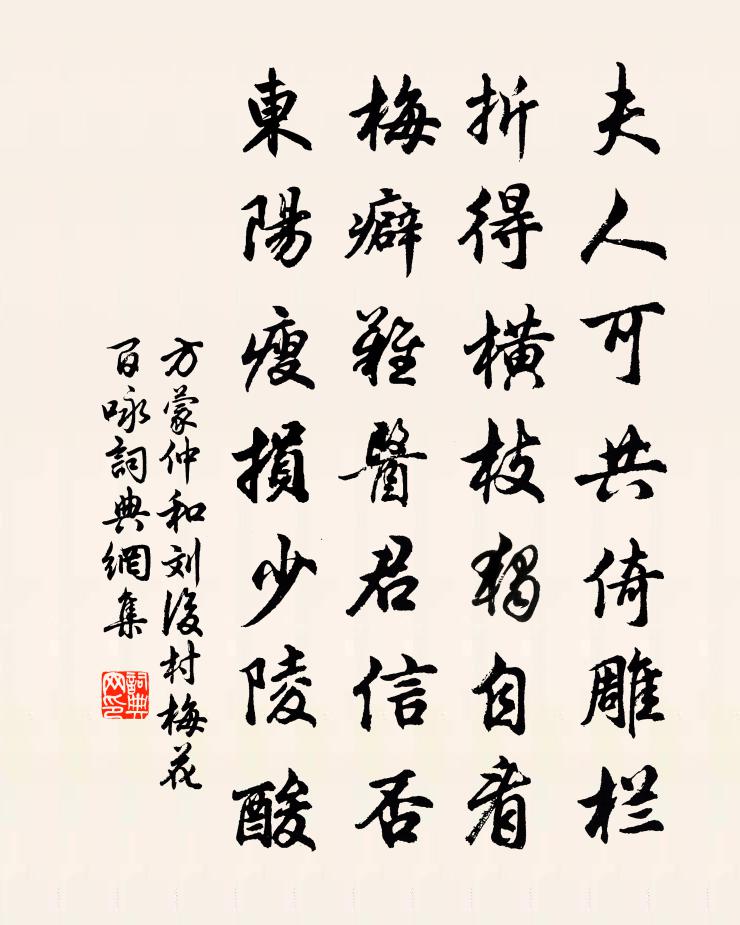 夫人可共倚雕栏
折得横枝独自看
梅癖難醫君信否
東陽瘦損少陵酸
方蒙仲和刘後村梅花
百咏詞典網集
詞典
网印